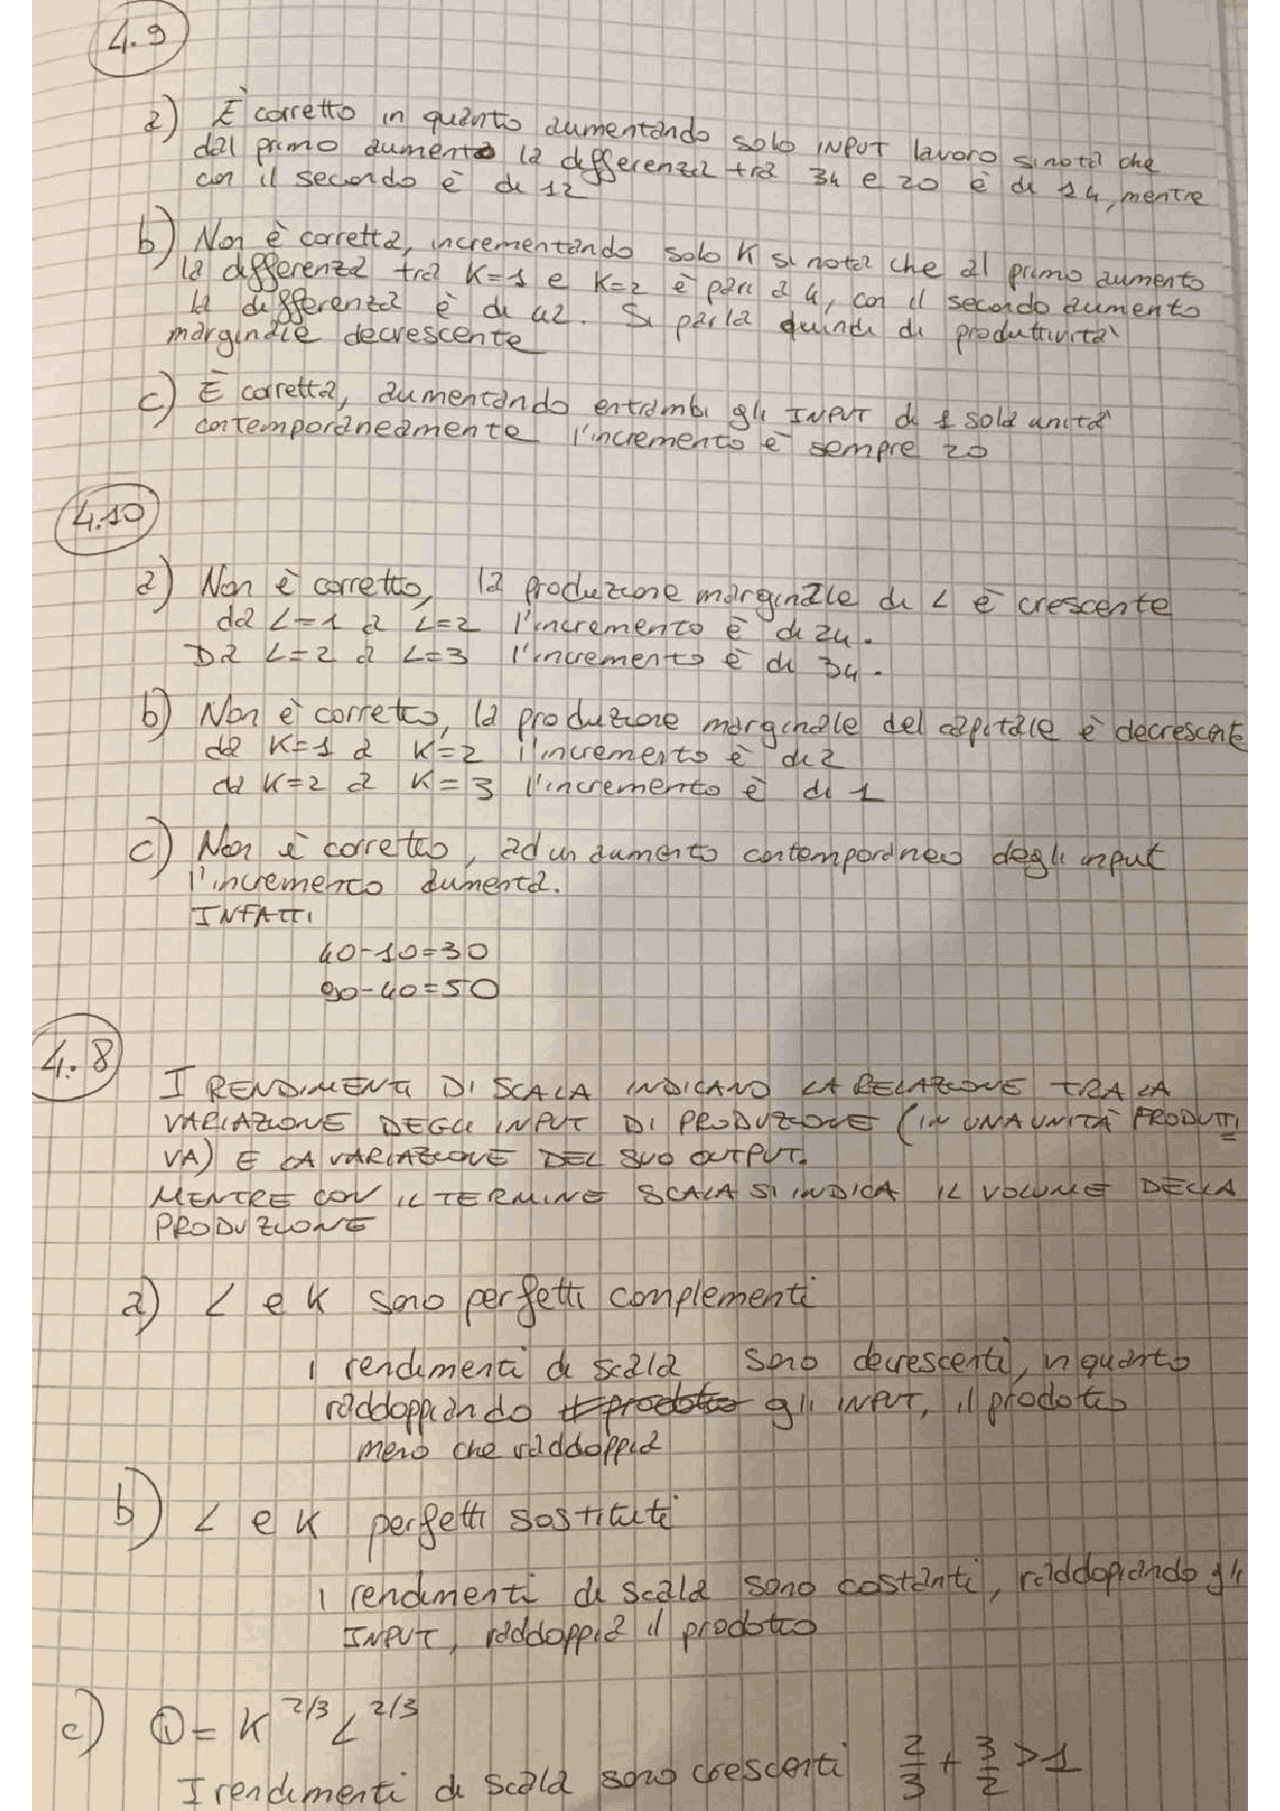 4.9
a) È corretto in quanto aumentando solo INPUT lavoro si nota che
dal primo aumento la differenza tra 34 e 20 è di 14, mentre
con il secondo è di 12
b) Non è corretta, incrementando solo K si nota che al primo aumento
la differenza tra K=1 e K=2 è pari a 4, con il secondo aumento
la differenza è di
marginale decrescente
Si parla quindi di produttività
c) È corretta, aumentando entrambi gli INPUT di 1 sola unità
contemporaneamente l'incremento è sempre 20
4.10
a) Non è corretto, la produzione marginale di L è crescente
da L=1 a L=2 l'incremento è di 24.
Da L=2 a L=3 l'incremento è di 34.
b) Non è corretto, la produzione marginale del capitale è decrescente
da K=1 a K=2 l'incremento è di 2
da K=2 a K=3 l'incremento è di 1
c) Non è corretto, ad un aumento contemporaneo degli input
l'incremento aumenta.
INFATTI
40-10=30
90-40=50
4.8
I RENDIMENTI DI SCALA INDICANO LA RELAZIONE TRA LA
VARIAZIONE DEGLI INPUT DI PRODUZIONE (IN UNA UNITÀ PRODUTTI
VA) E LA VARIAZIONE DEL SUO OUTPUT.
MENTRE CON IL TERMINE SCALA SI INDICA IL VOLUME DELLA
PRODUZIONE
a) L e K sono perfetti complementi
i rendimenti di scala sono decrescenti, in quanto
raddoppiando gli INPUT, il prodotto
meno che raddoppia
b) L e K perfetti sostituti
i rendimenti di scala sono costanti, raddopiando gli
INPUT, raddoppia il prodotto
c) Q = K^2/3 L^2/3
I rendimenti di scala sono crescenti 2/3 + 3/2 > 1